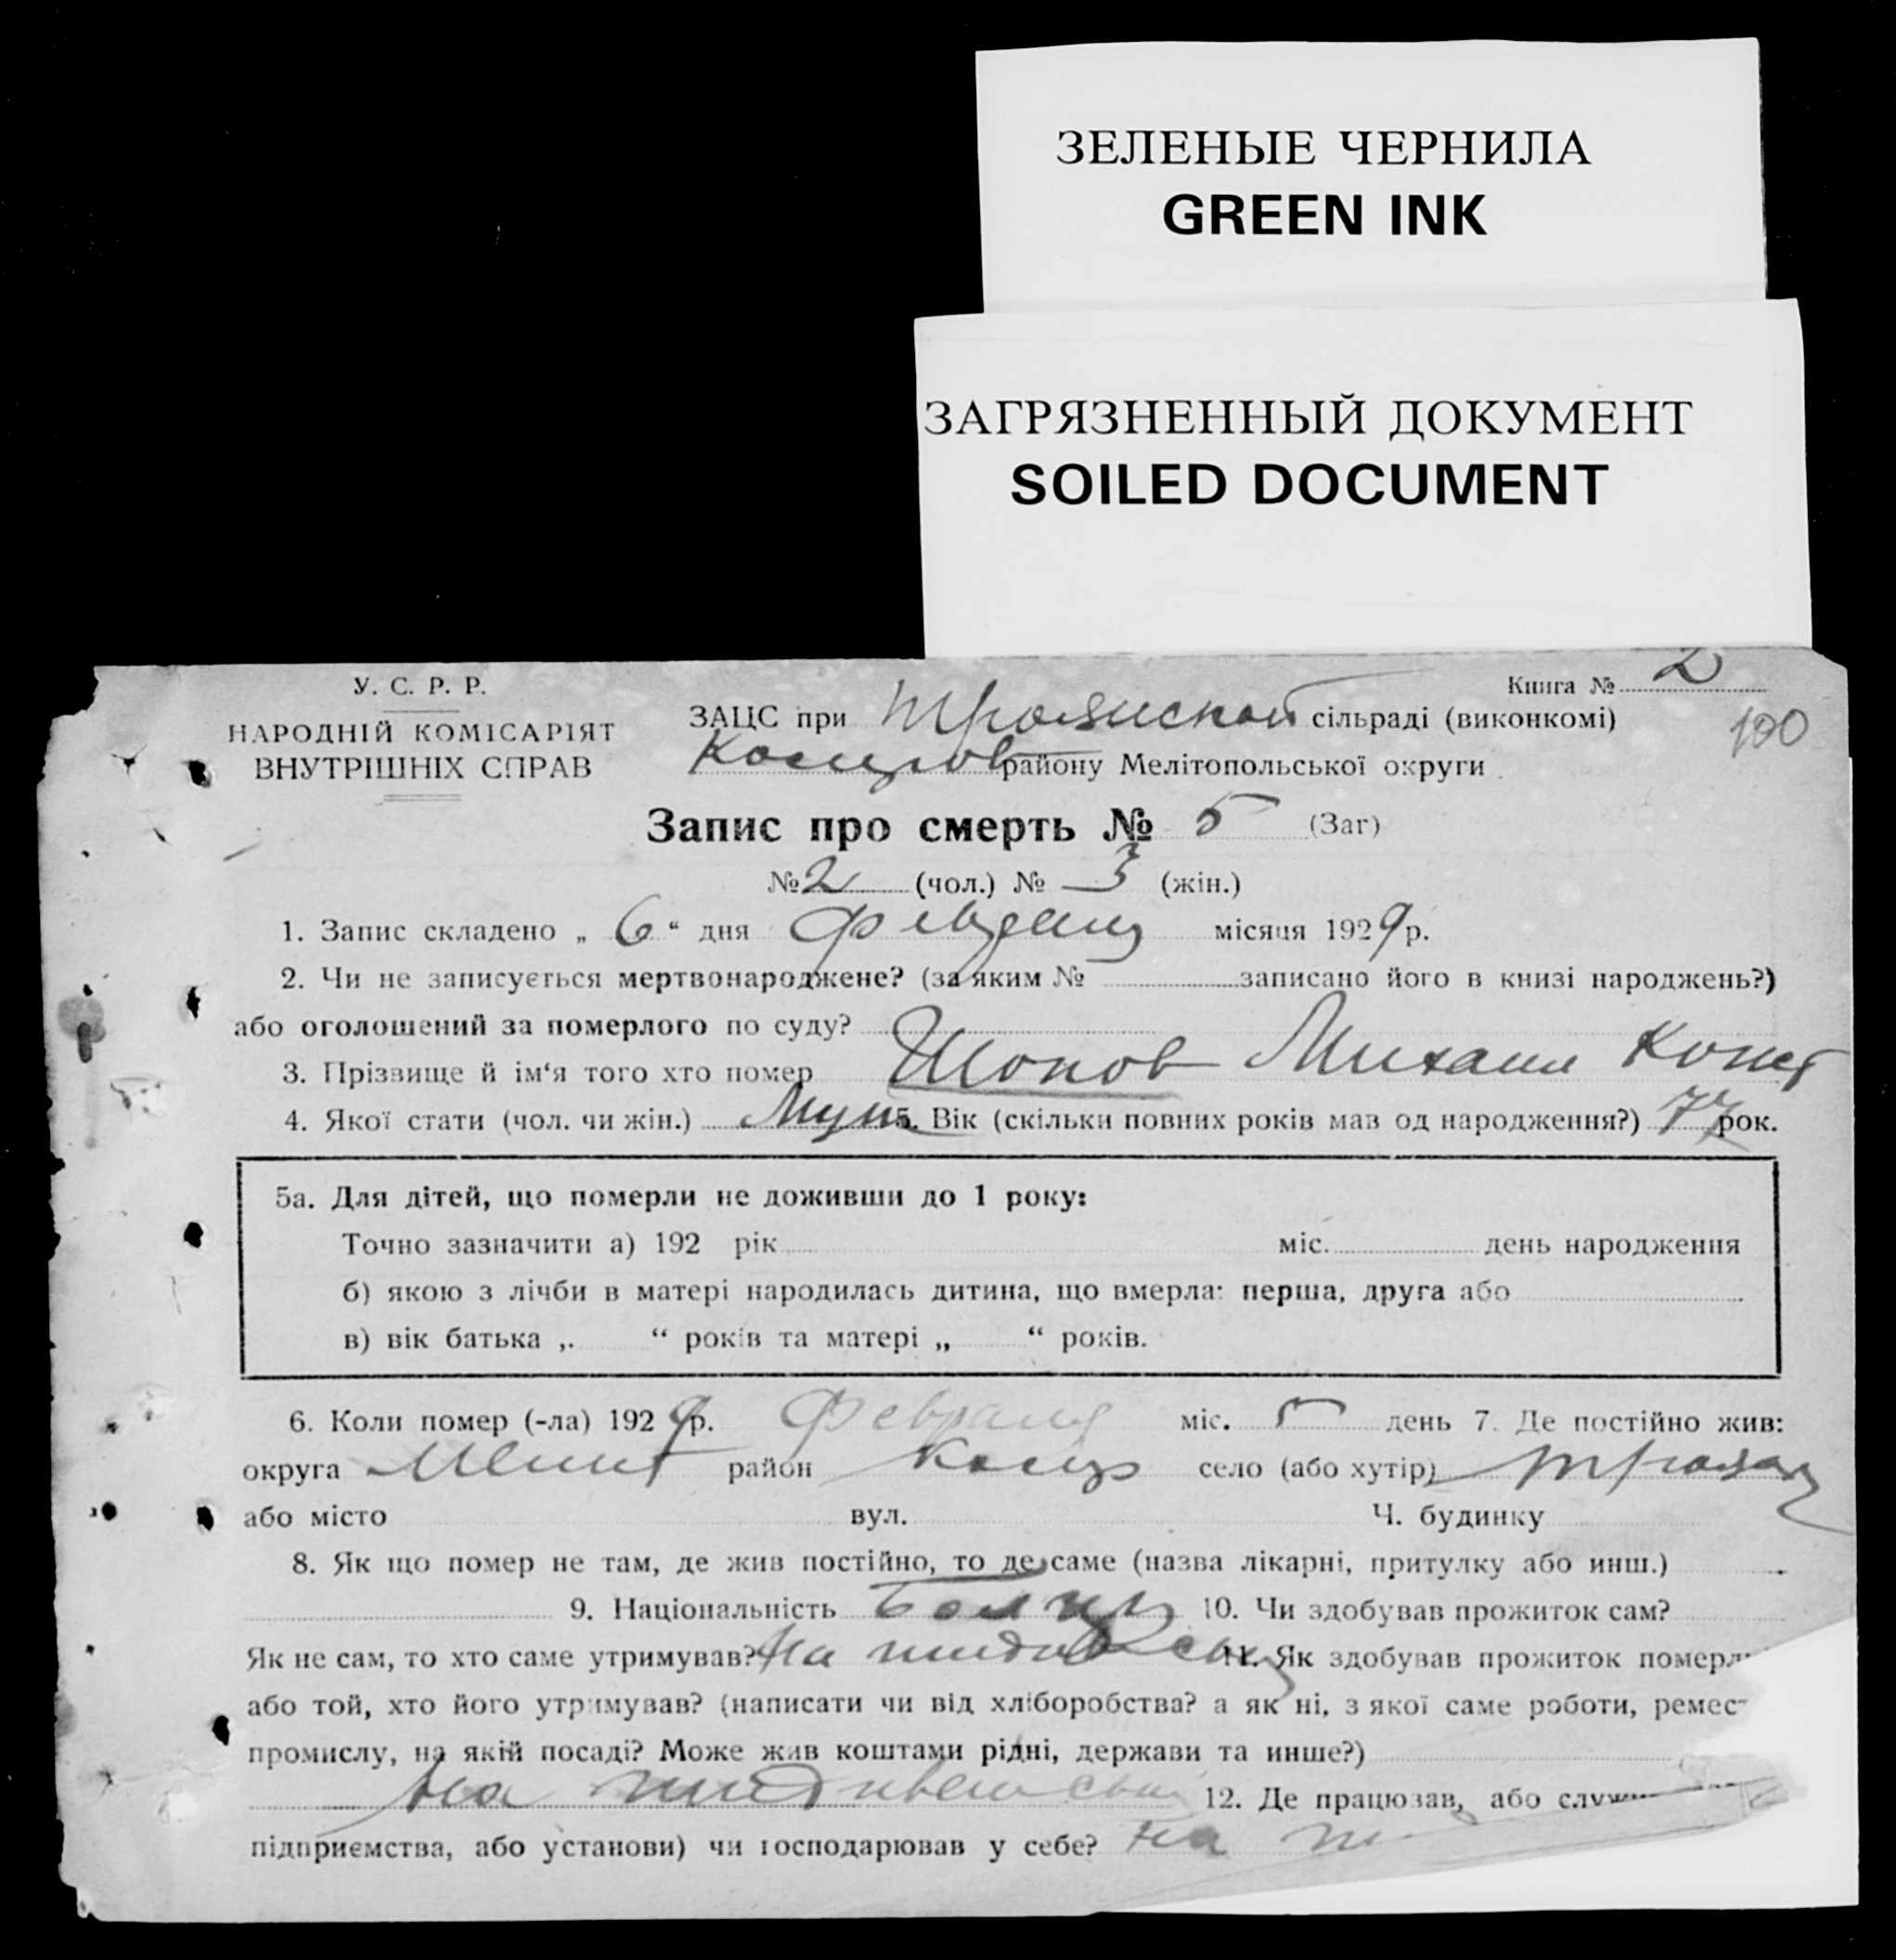 ЗЕЛЕНЫЕ ЧЕРНИЛА
GREEN INK
ЗАГРЯЗНЕННЫЙ ДОКУМЕНТ
SOILED DOCUMENT
У. С. Р. Р.
НАРОДНІЙ КОМІСАРІЯТ
ВНУТРІШНІХ СПРАВ
Книга № 2
100
ЗАЦС при Троянской сільраді (виконкомі)
району Мелітопольської округи
Запис про смерть № 5 (Заг)
№ 2 (чол.) № 3 (жін.)
1. Запис складено „ 6 “ дня февраля місяця 1929 р.
2. Чи не записується мертвонароджене? (за яким № записано його в книзі народжень?)
або оголошений за померлого по суду?
3. Прізвище й ім'я того хто помер Шопов Михаил Конст
4. Якої стати (чол. чи жін.) Муж 5. Вік (скільки повних років мав од народження?) 77 рок.
5а. Для дітей, що померли не доживши до 1 року:
Точно зазначити а) 192 рік міс. день народження
б) якою з лічби в матері народилась дитина, що вмерла: перша, друга або
в) вік батька „ “ років та матері „ “ років.
6. Коли помер (-ла) 1929 р. Февраля міс. 5 день 7. Де постійно жив:
округа Мелит район село (або хутір) Троян
або місто вул. Ч. будинку
8. Як що помер не там, де жив постійно, то де саме (назва лікарні, притулку або инш.)
9. Національність Болгар 10. Чи здобував прожиток сам?
Як не сам, то хто саме утримував? На иждив сына 11. Як здобував прожиток померл
або той, хто його утримував? (написати чи від хліборобства? а як ні, з якої саме роботи, ремес
промислу, на якій посаді? Може жив коштами рідні, держави та инше?)
На сына 12. Де працював, або служи
підприємства, або установи) чи господарював у себе? На